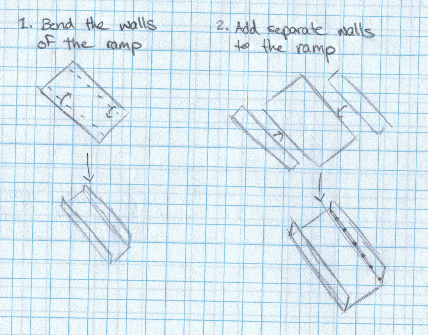 1. Bend the walls
of the ramp
2. Add separate walls
to the ramp